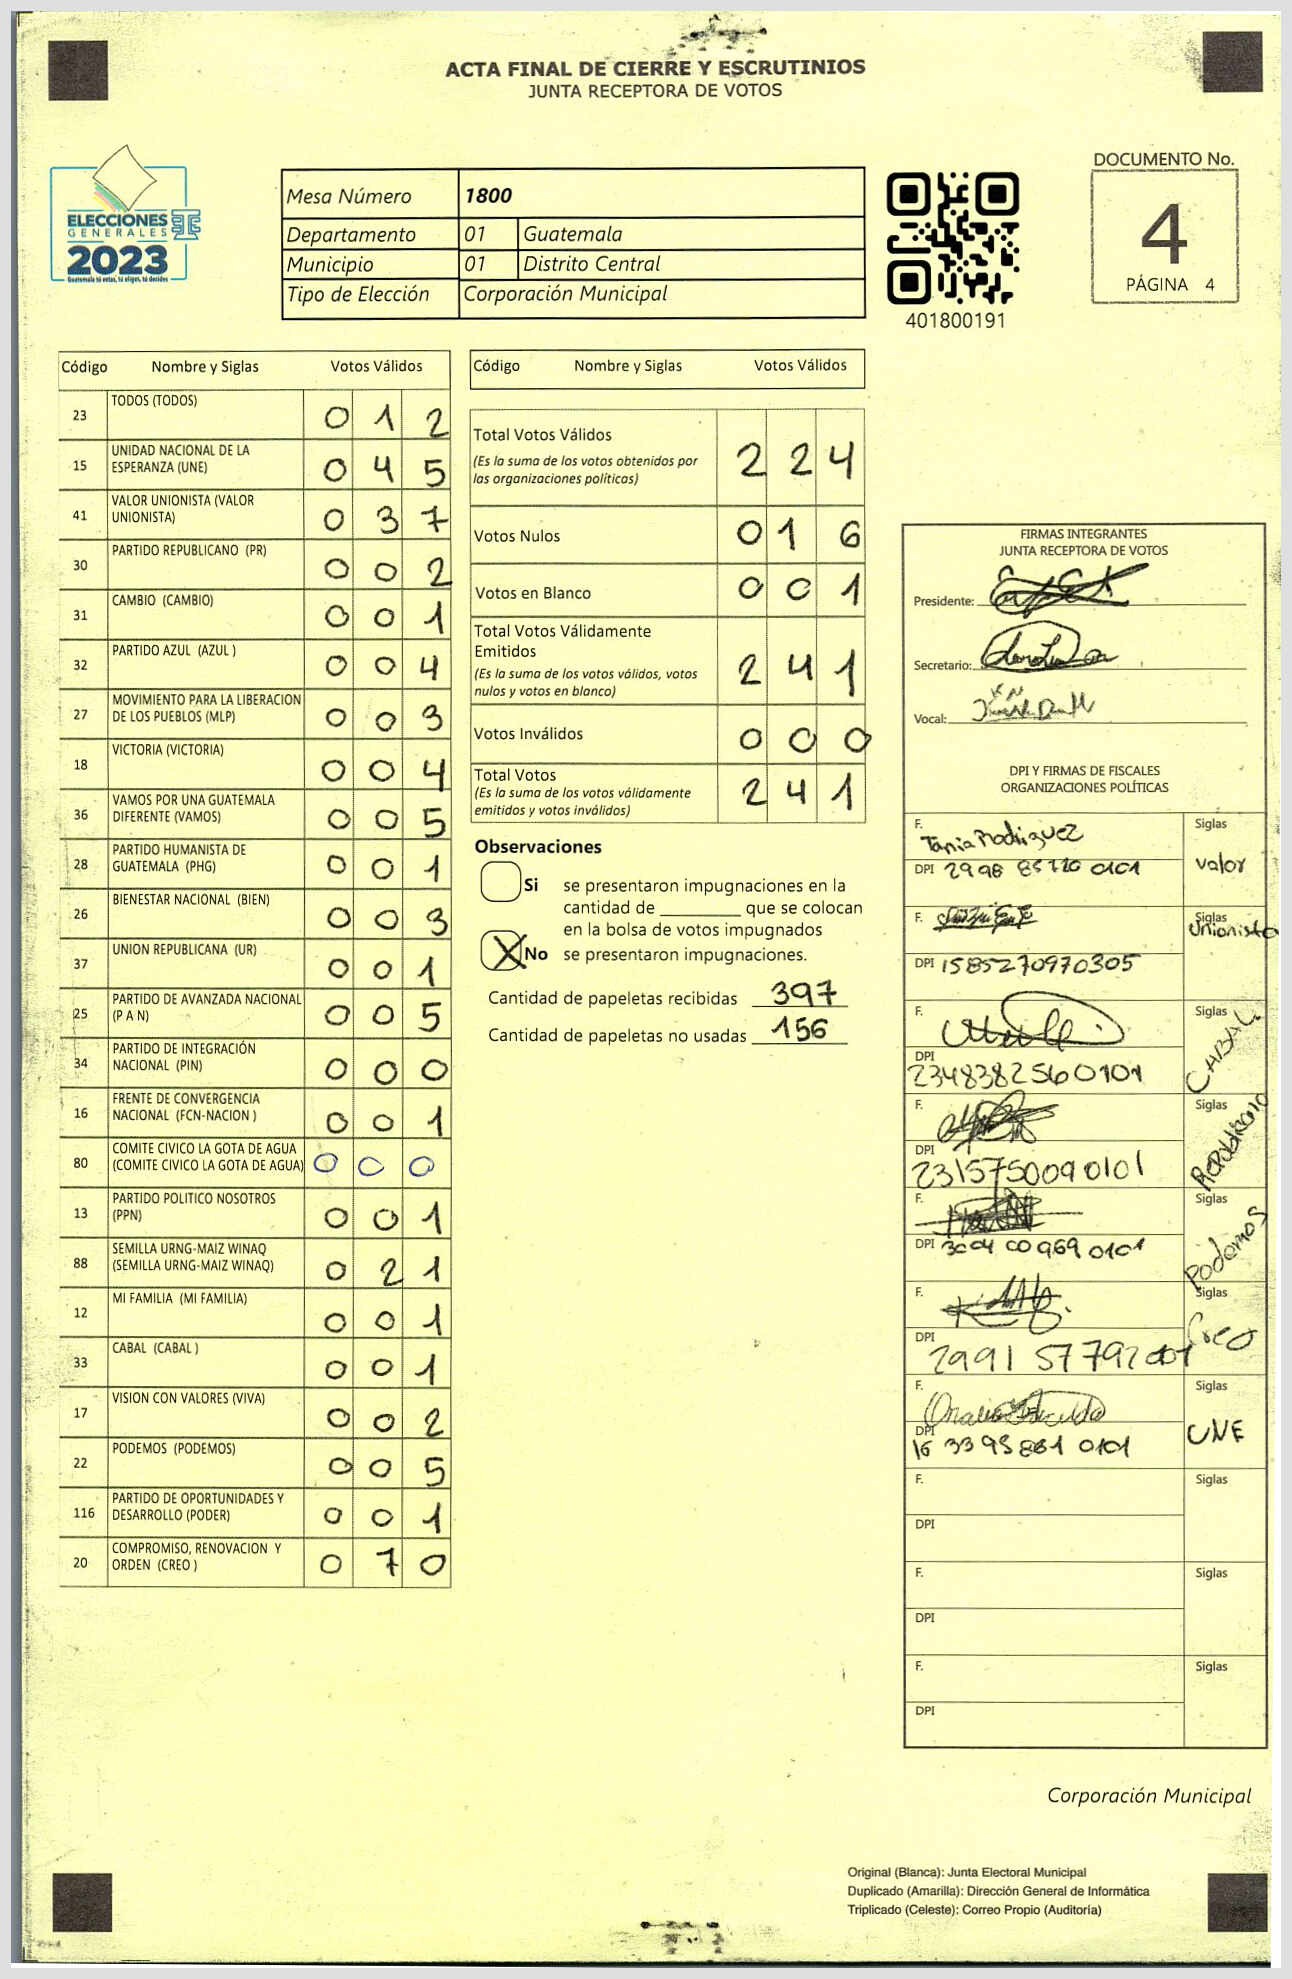 ACTA FINAL DE CIERRE Y ESCRUTINIOS
JUNTA RECEPTORA DE VOTOS
ELECCIONES
GENERALES
2023
Guatemala tú votas, tú eliges, tú decides
Mesa Número 1800
Departamento 01 Guatemala
Municipio 01 Distrito Central
Tipo de Elección Corporación Municipal
401800191
DOCUMENTO No.
4
PÁGINA 4
Código Nombre y Siglas Votos Válidos
23 TODOS (TODOS) 0 1 2
15 UNIDAD NACIONAL DE LA
ESPERANZA (UNE) 0 4 5
41 VALOR UNIONISTA (VALOR
UNIONISTA) 0 3 7
30 PARTIDO REPUBLICANO (PR) 0 0 2
31 CAMBIO (CAMBIO) 0 0 1
32 PARTIDO AZUL (AZUL ) 0 0 4
27 MOVIMIENTO PARA LA LIBERACION
DE LOS PUEBLOS (MLP) 0 0 3
18 VICTORIA (VICTORIA) 0 0 4
36 VAMOS POR UNA GUATEMALA
DIFERENTE (VAMOS) 0 0 5
28 PARTIDO HUMANISTA DE
GUATEMALA (PHG) 0 0 1
26 BIENESTAR NACIONAL (BIEN) 0 0 3
37 UNION REPUBLICANA (UR) 0 0 1
25 PARTIDO DE AVANZADA NACIONAL
(P A N) 0 0 5
34 PARTIDO DE INTEGRACIÓN
NACIONAL (PIN) 0 0 0
16 FRENTE DE CONVERGENCIA
NACIONAL (FCN-NACION ) 0 0 1
80 COMITE CIVICO LA GOTA DE AGUA
(COMITE CIVICO LA GOTA DE AGUA) 0 0 0
13 PARTIDO POLITICO NOSOTROS
(PPN) 0 0 1
88 SEMILLA URNG-MAIZ WINAQ
(SEMILLA URNG-MAIZ WINAQ) 0 2 1
12 MI FAMILIA (MI FAMILIA) 0 0 1
33 CABAL (CABAL ) 0 0 1
17 VISION CON VALORES (VIVA) 0 0 2
22 PODEMOS (PODEMOS) 0 0 5
116 PARTIDO DE OPORTUNIDADES Y
DESARROLLO (PODER) 0 0 1
20 COMPROMISO, RENOVACION Y
ORDEN (CREO ) 0 7 0
Código Nombre y Siglas Votos Válidos
Total Votos Válidos 2 2 4
(Es la suma de los votos obtenidos por
las organizaciones políticas)
Votos Nulos 0 1 6
Votos en Blanco 0 0 1
Total Votos Válidamente
Emitidos 2 4 1
(Es la suma de los votos válidos, votos
nulos y votos en blanco)
Votos Inválidos 0 0 0
Total Votos 2 4 1
(Es la suma de los votos válidamente
emitidos y votos inválidos)
Observaciones
Si se presentaron impugnaciones en la
cantidad de ________ que se colocan
en la bolsa de votos impugnados
X No se presentaron impugnaciones.
Cantidad de papeletas recibidas 397
Cantidad de papeletas no usadas 156
FIRMAS INTEGRANTES
JUNTA RECEPTORA DE VOTOS
Presidente:
Secretario:
Vocal:
DPI Y FIRMAS DE FISCALES
ORGANIZACIONES POLÍTICAS
F. Tania Rodriguez Siglas
DPI 2998 85720 0101 valor
F. Siglas
Unionista
DPI 1585270970305
F. Siglas
CABAL
DPI
2348382560101
F. Siglas
Republicano
DPI
2315750090101
F. Siglas
Podemos
DPI 3004 00969 0101
F. Siglas
Creo
DPI
2991 57792 0101
F. Siglas
UNE
DPI
16 33 95861 0101
F. Siglas
DPI
F. Siglas
DPI
F. Siglas
DPI
Corporación Municipal
Original (Blanca): Junta Electoral Municipal
Duplicado (Amarilla): Dirección General de Informática
Triplicado (Celeste): Correo Propio (Auditoría)